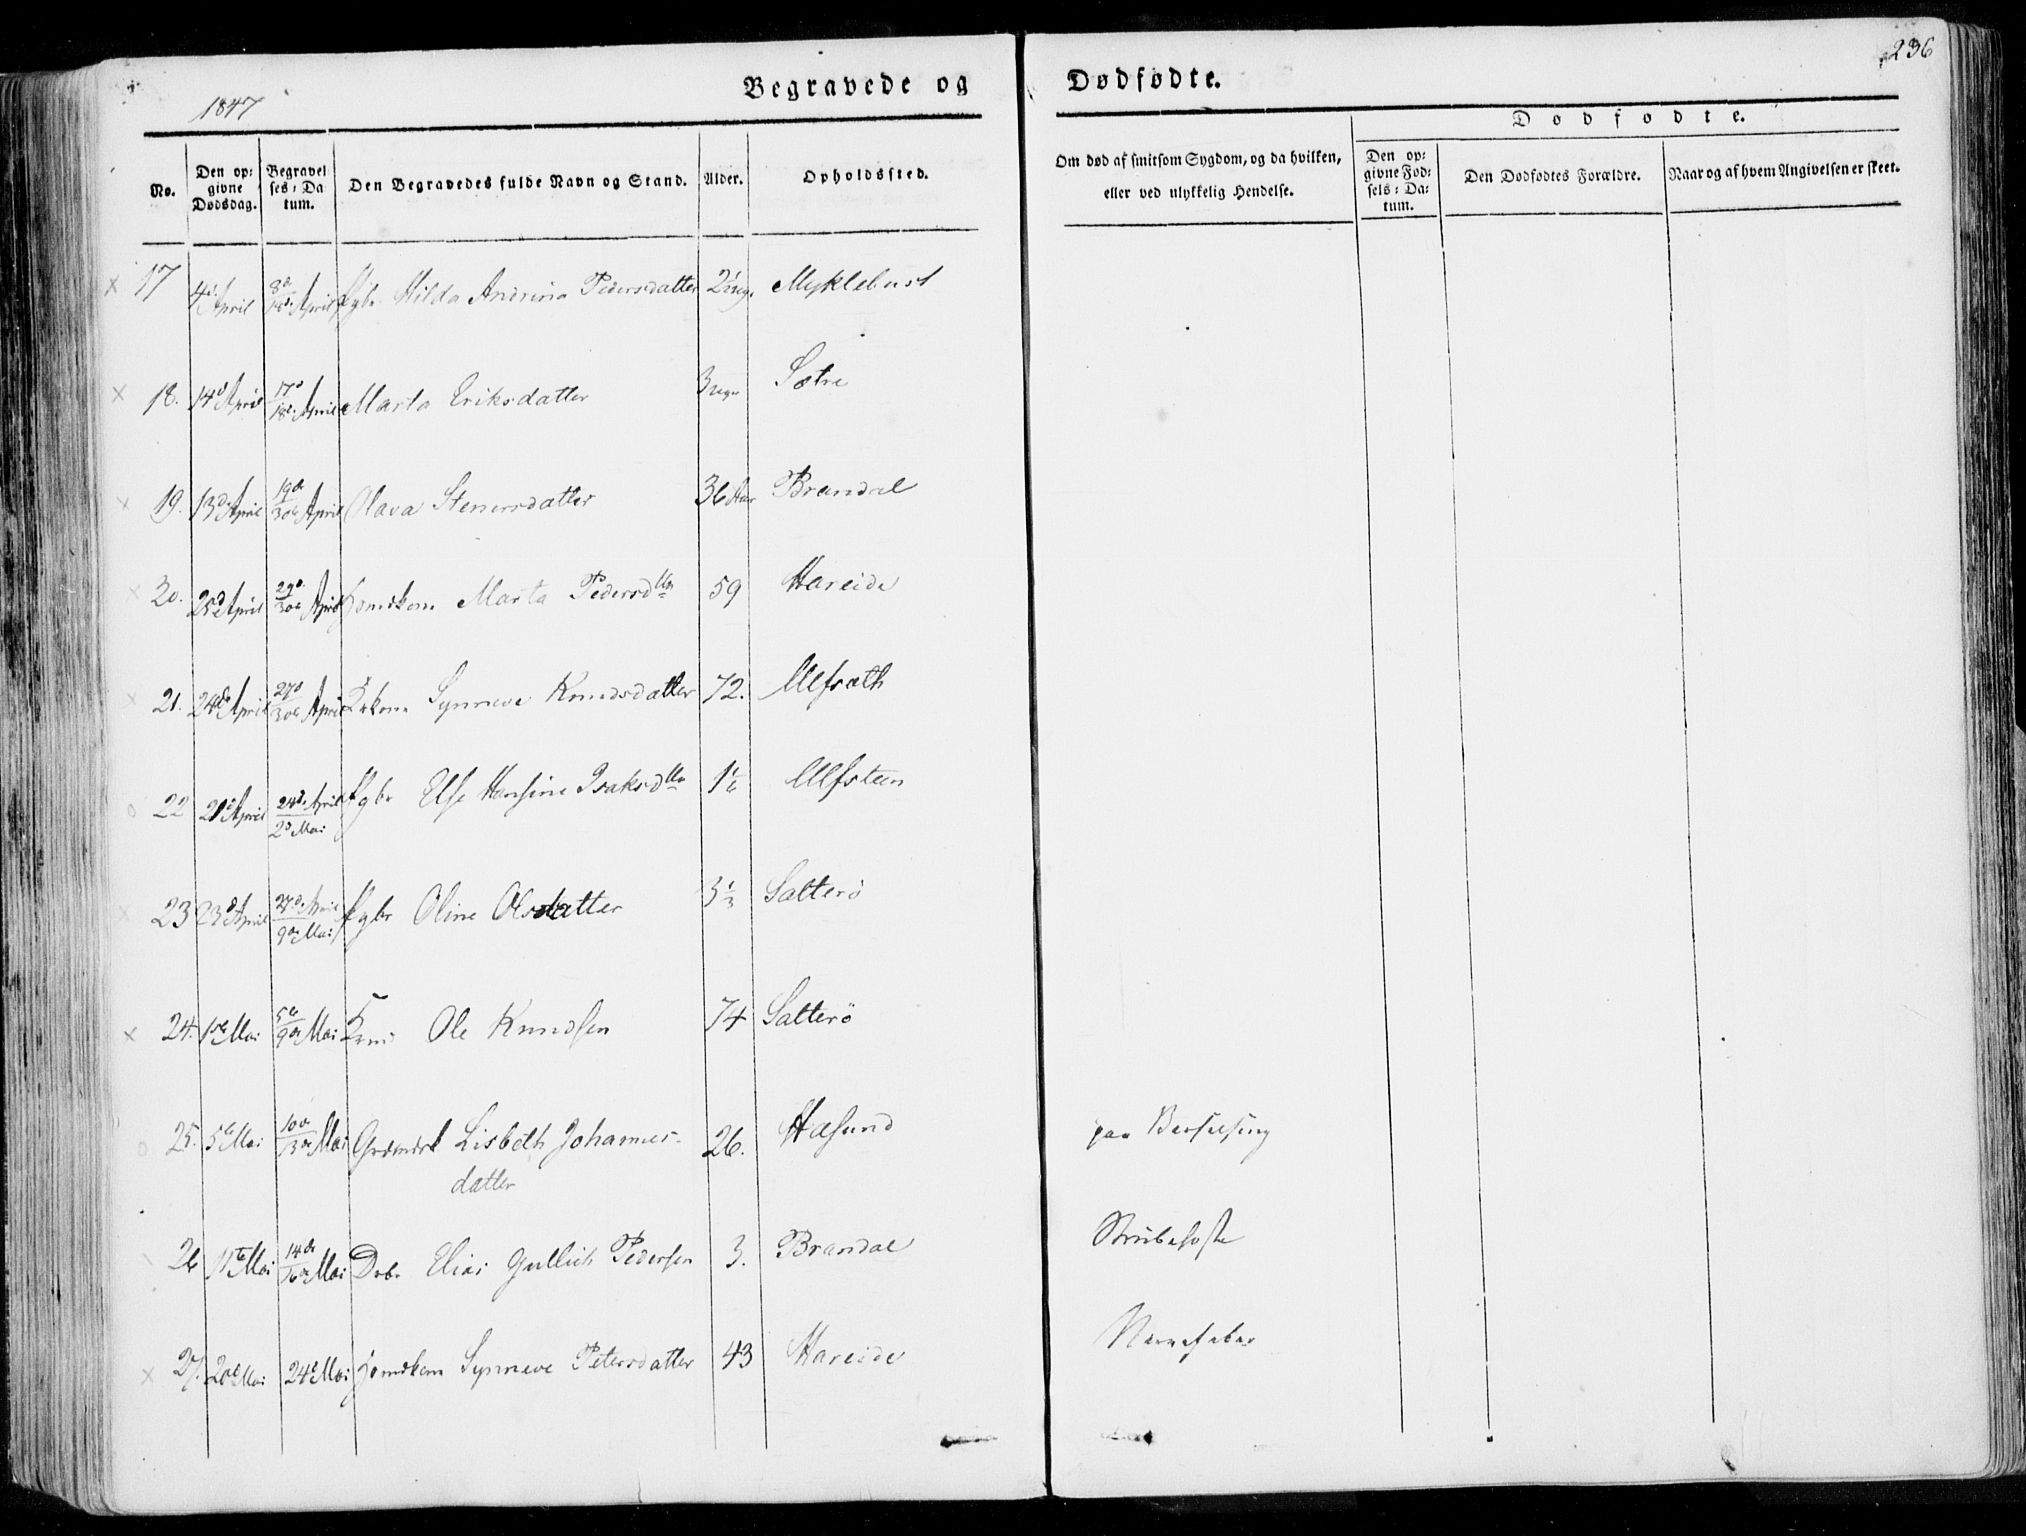 236
1847
Begravede og Dødfødte.
Dødfødte.
No.
Den op-
givne
Dødsdag.
Begravel
ses-Da
tum.
Den Begravedes fulde Navn og Stand.
Alder.
Opholdssted.
Om død af smitsom Sygdom, og da hvilken,
eller ved ulykkelig Hendelse.
Den op-
givne Fød-
sels-Da-
tum.
Den Dødfødtes Forældre.
Naar og af hvem Angivelsen er skeet.
17 4d April 8d April Pgbr Hilda Andrina Pedersdatter Myklebust
18. 14d April 17d 18d April Marta Eriksdatter 3 Sætre
19. 13d April 19de 30te April Olava Stenersdatter 36 Aar Brandal
20. 25d April 29d 30te April Marta Pedersdtter 59 Hareide
21. 24de April 27d 30te April Synneve Knudsdatter 72. Ulfsæth
22 21d April 24de April 2d Mai Pgbr Else Hansine Isaksdtter Ulfsteen
23 23d April 27de April 9de Mai Pgbr Oline Olsdatter 3⅓ Satterö
24. 1ste Mai 5te 9de Mai Ole Knudsen 74 Satterö
25. 5te Mai 10de 13de Mai Lisbeth Johannes- 26. Hasund paa Barselseng
datter
26 11te Mai 14de 16de Mai Drbr Elias Gullich Pedersen 3. Brandal Strubehoste
27. 20d Mai 24d Mai Synneve Petersdatter 43 Hareide Nervefeber